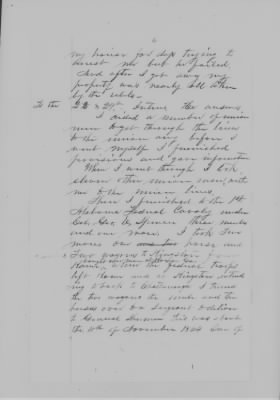 my house for days trying to
arrest me but he failed
And after I got away my
property was nearly all taken
by the rebels.
To the 28 & 29th Inty he answers.
I aided a number of union
men to get through the lines
to the union army before I
went myself I furnished
provisions and gave information
When I went through I took
eleven other union men with
me to the union lines.
Then I furnished to the 1st
Alabama Federal Cavalry under
Col. Geo. E. Spencer three mules
and one mare. I took two
mares one horse and
two wagons to Kingston from
Rome, when the federal troops
left Rome and at Kingston
my
the two wagons the mules and the
horses over to a Sergeant
to General Sherman This was about
the 10th of November 1864 One of